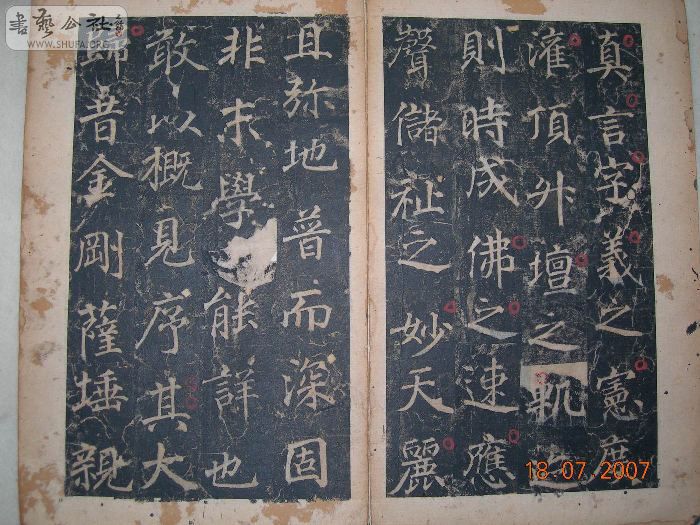 書藝公社
WWW.SHUFA.ORG
真言字義之憲度
灌頂升壇之軌
則時成佛之速應
聲儲祉之妙天麗
且弥地普而深固
非末學能詳也
敢以概見序其大
歸昔金剛薩埵親
18.07.2007